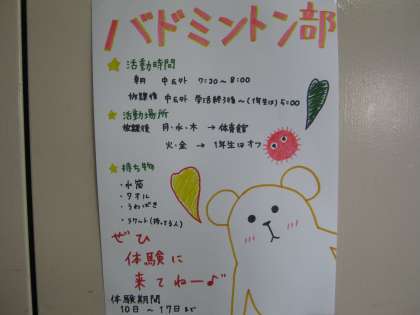 バドミントン部
活動時間
朝 中庭外 7:30〜8:00
放課後 中庭外 学活終了後〜(1年生は)5:00
活動場所
放課後 月・水・木 → 体育館
火・金 → 1年生はオフ
持ち物
・水筒
・タオル
・うわばき
・ラケット(持ってる人)
ぜひ
体験に
来てねー♪
体験期間
10日〜17日まで